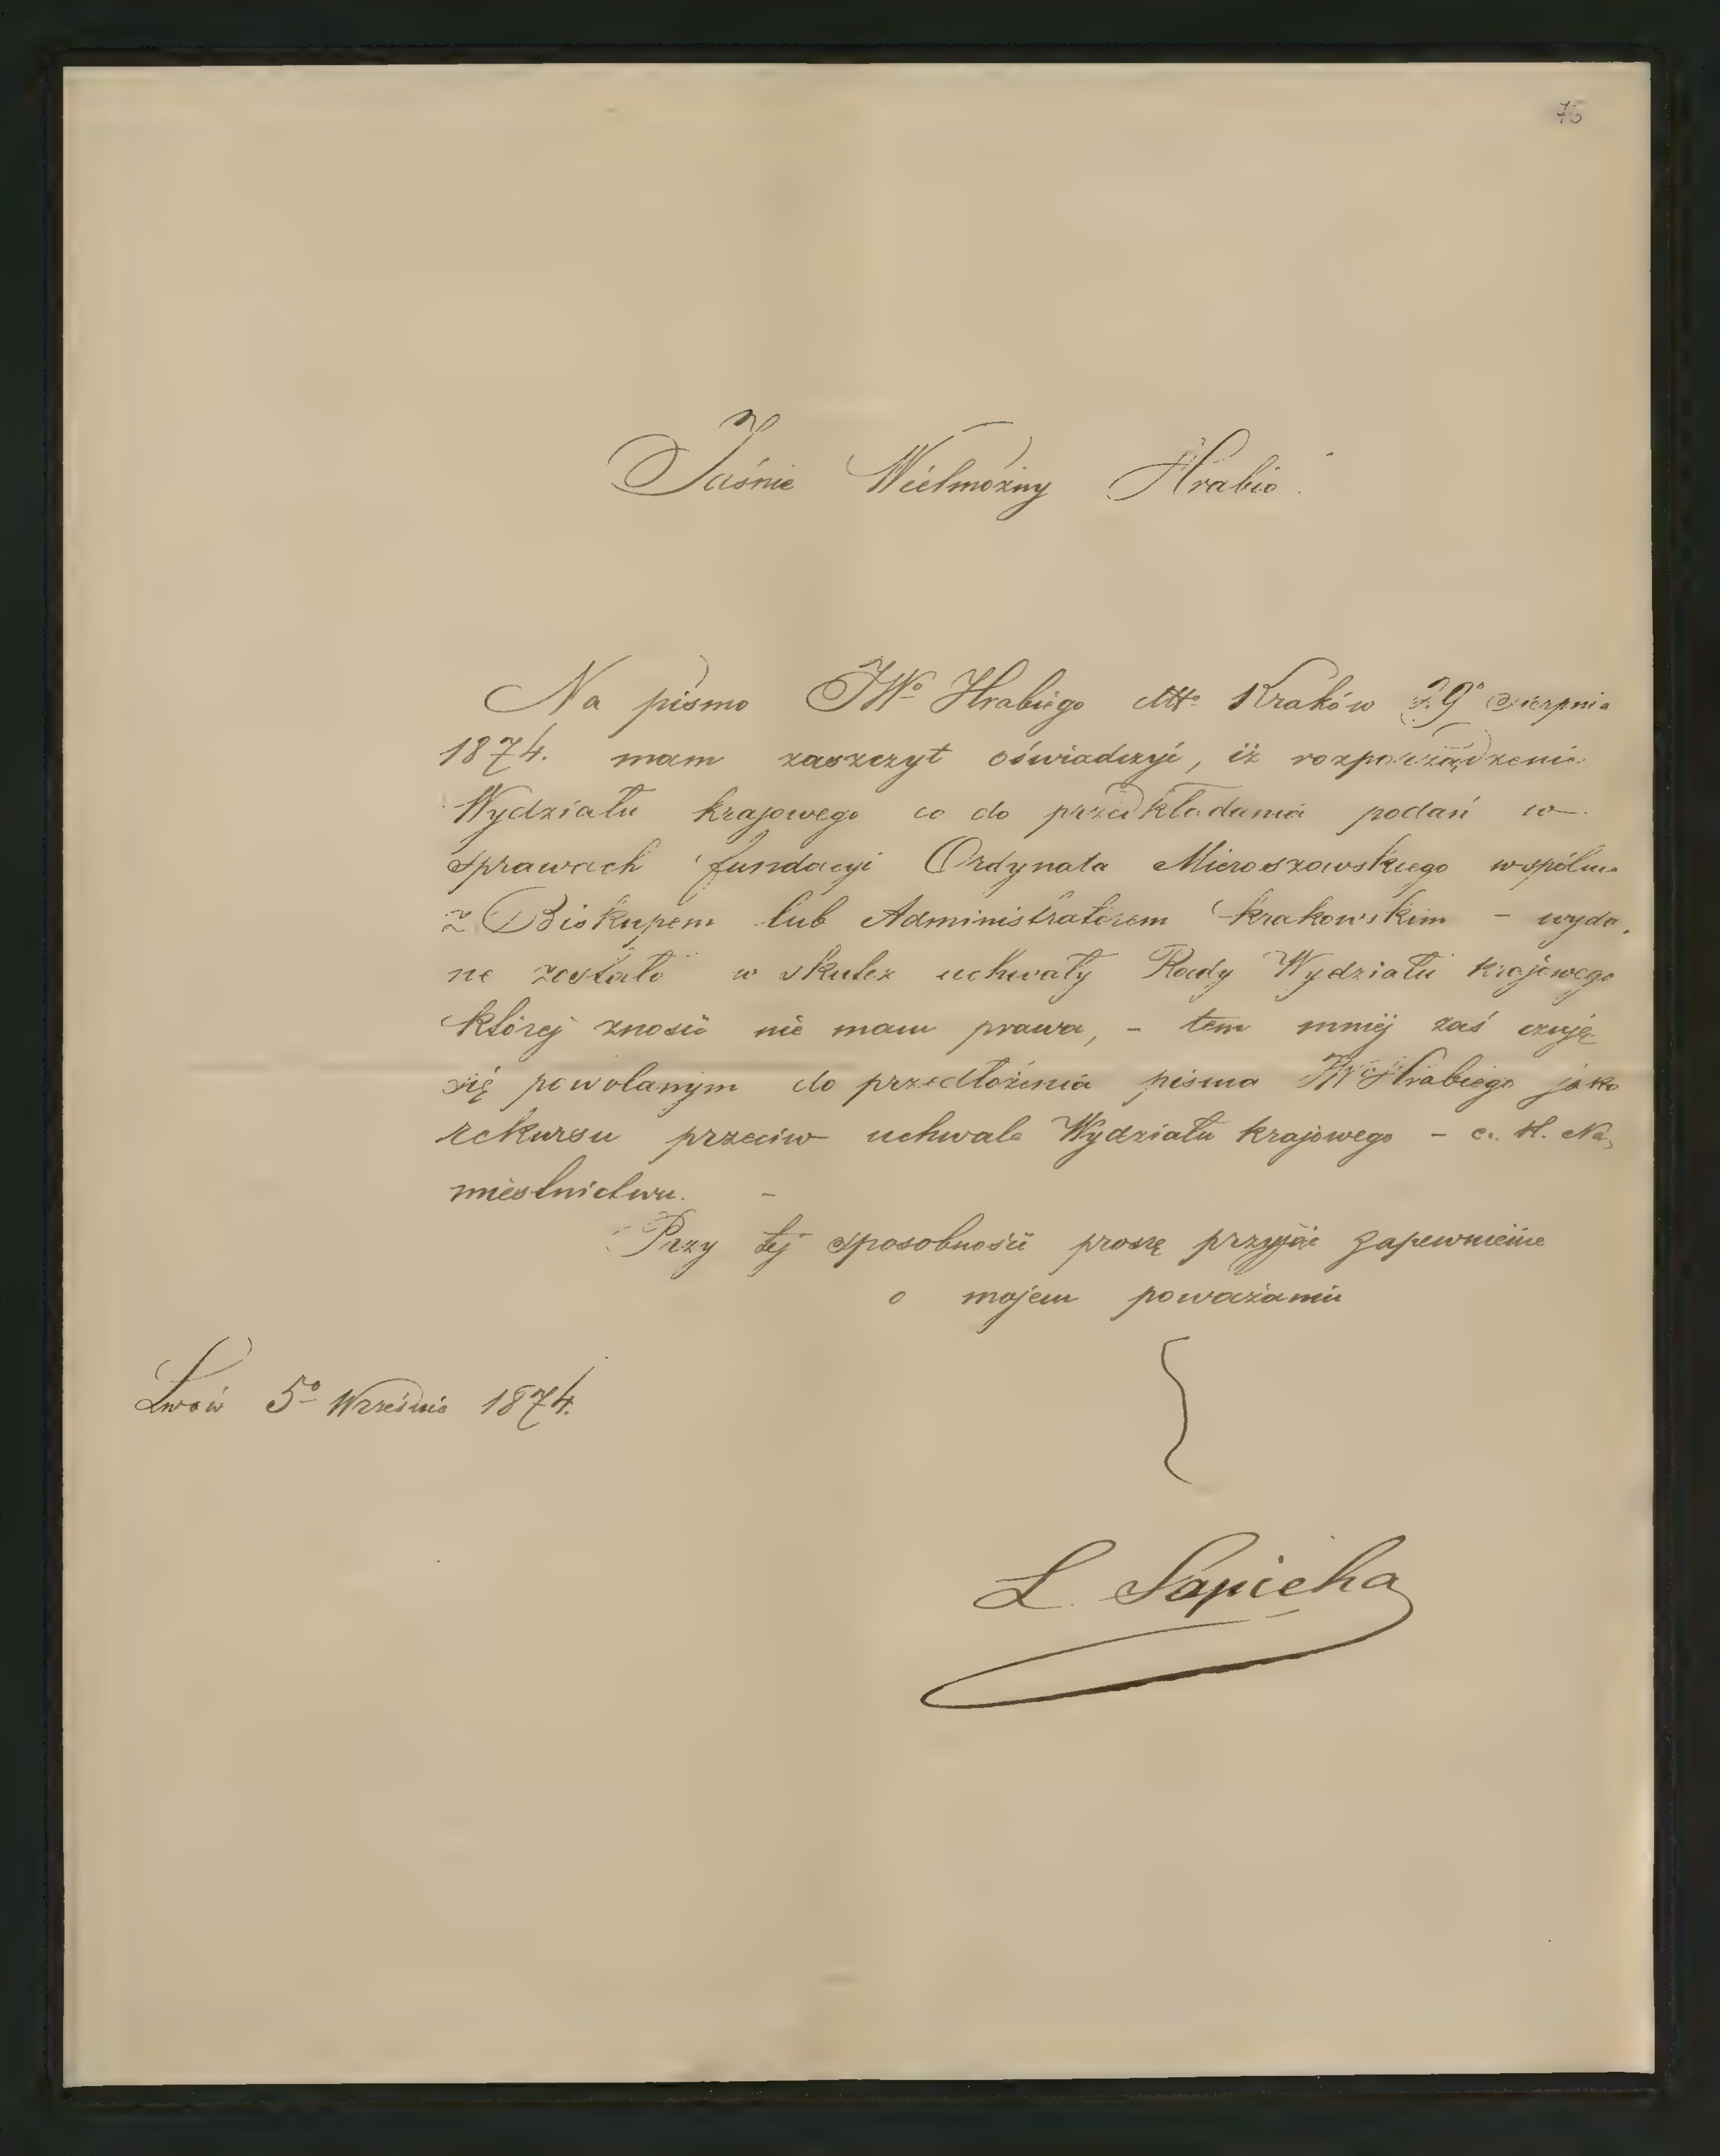 76
Jaśnie Wielmożny Hrabio
Na pismo JWo Hrabiego dtto Kraków 29o Sierpnia
1874. mam zaszczyt oświadczyć, iż rozporządzenie
Wydziału krajowego co do przedkładania podań w
sprawach fundacyi Ordynata Mieroszowskiego wspólnie
z Biskupem lub Administratorem krakowskim - wyda,
ne zostało w skutek uchwały Rady Wydziału krajowego
której znosić nie mam prawa, - tem mniej zaś czuję
się powołanym do przedłożenia pisma JWo Hrabiego jako
rekursu przeciw uchwale Wydziału krajowego - c. k. Na,
miestnictwu. -
Przy tej sposobności proszę przyjąć zapewnienie
o mojem poważaniu
Lwów 5o Września 1874.
L. Sapieha